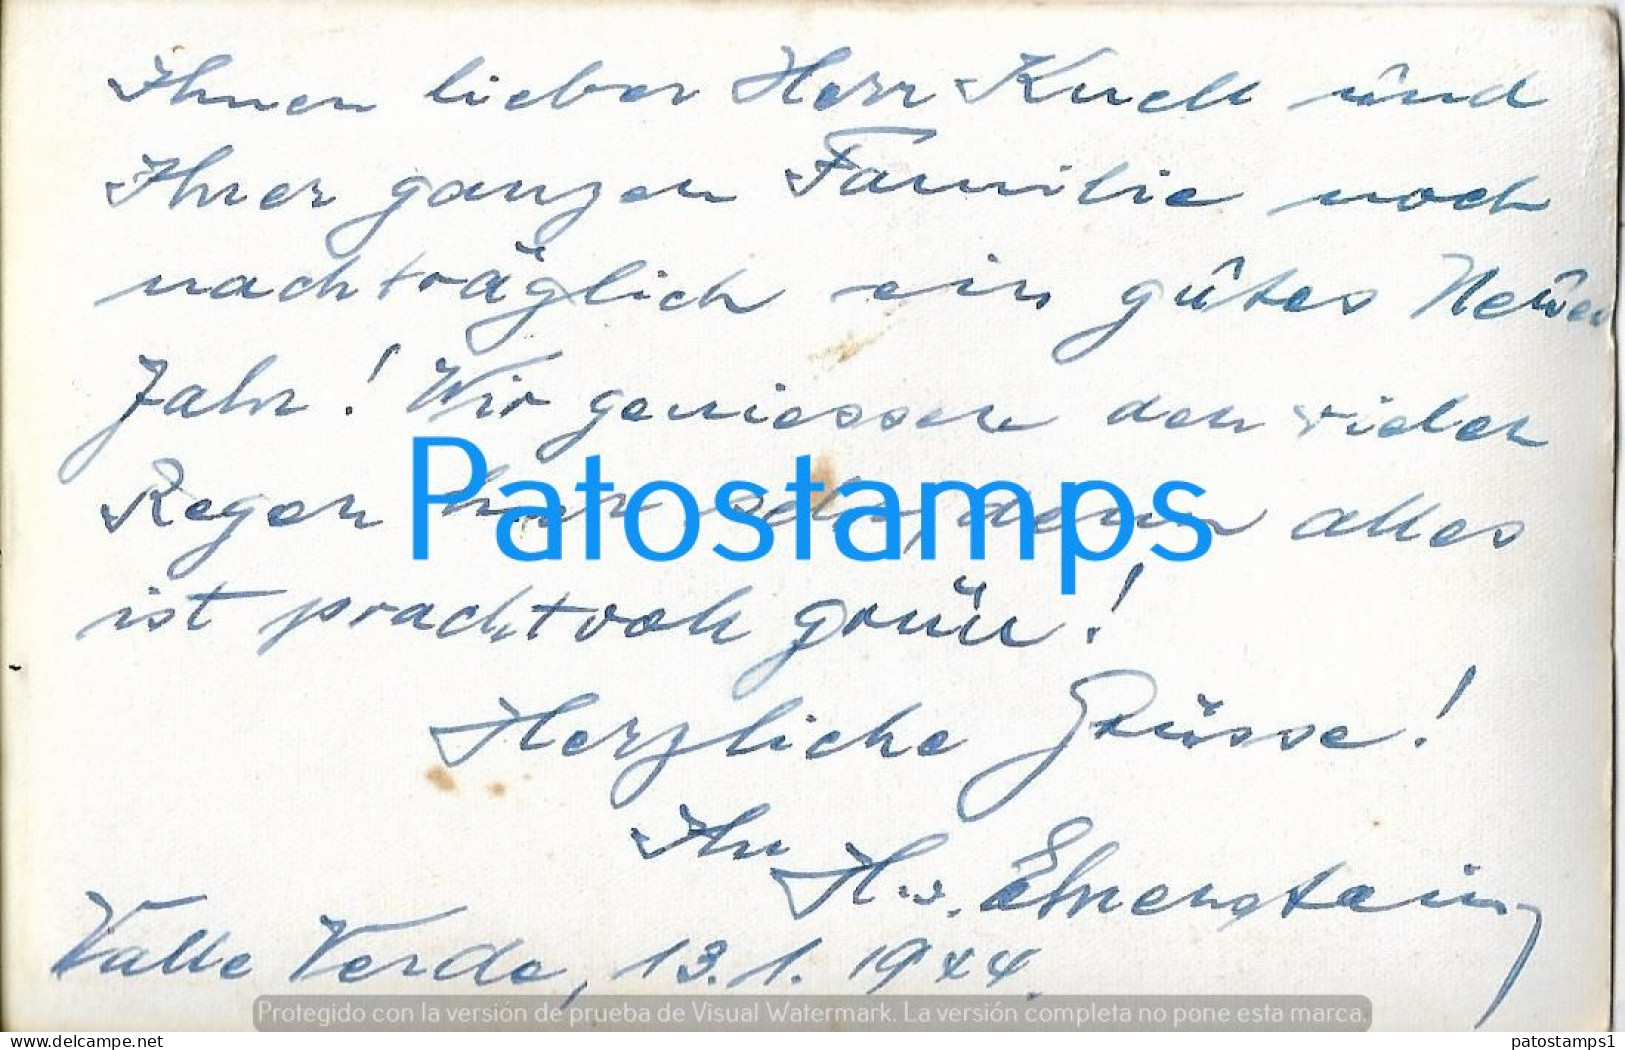 Ihnen lieber Herr Knell und
Ihrer ganzen Familie noch
nachträglich ein gutes Neues
Jahr! Wir geniessen den vielen
Regen hier sehr, denn alles
ist prachtvoll grün!
Herzliche Grüsse!
Ihr
H. v. Ehrenstein
Valle Verde, 13.1.1944.
Patostamps
Protegido con la versión de prueba de Visual Watermark. La versión completa no pone esta marca.
www.delcampe.net
patostamps1